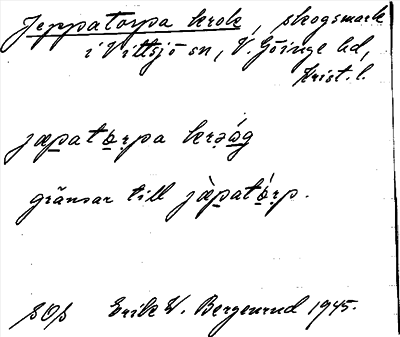 Jeppatorpa krok, skogsmark
i Vittsjö sn, V. Göinge hd,
Krist. l.
japatǫrpa krǝǫ́g
gränsar till jàpatǫ́rp.
SOs Erik W. Bergenrud 1945.